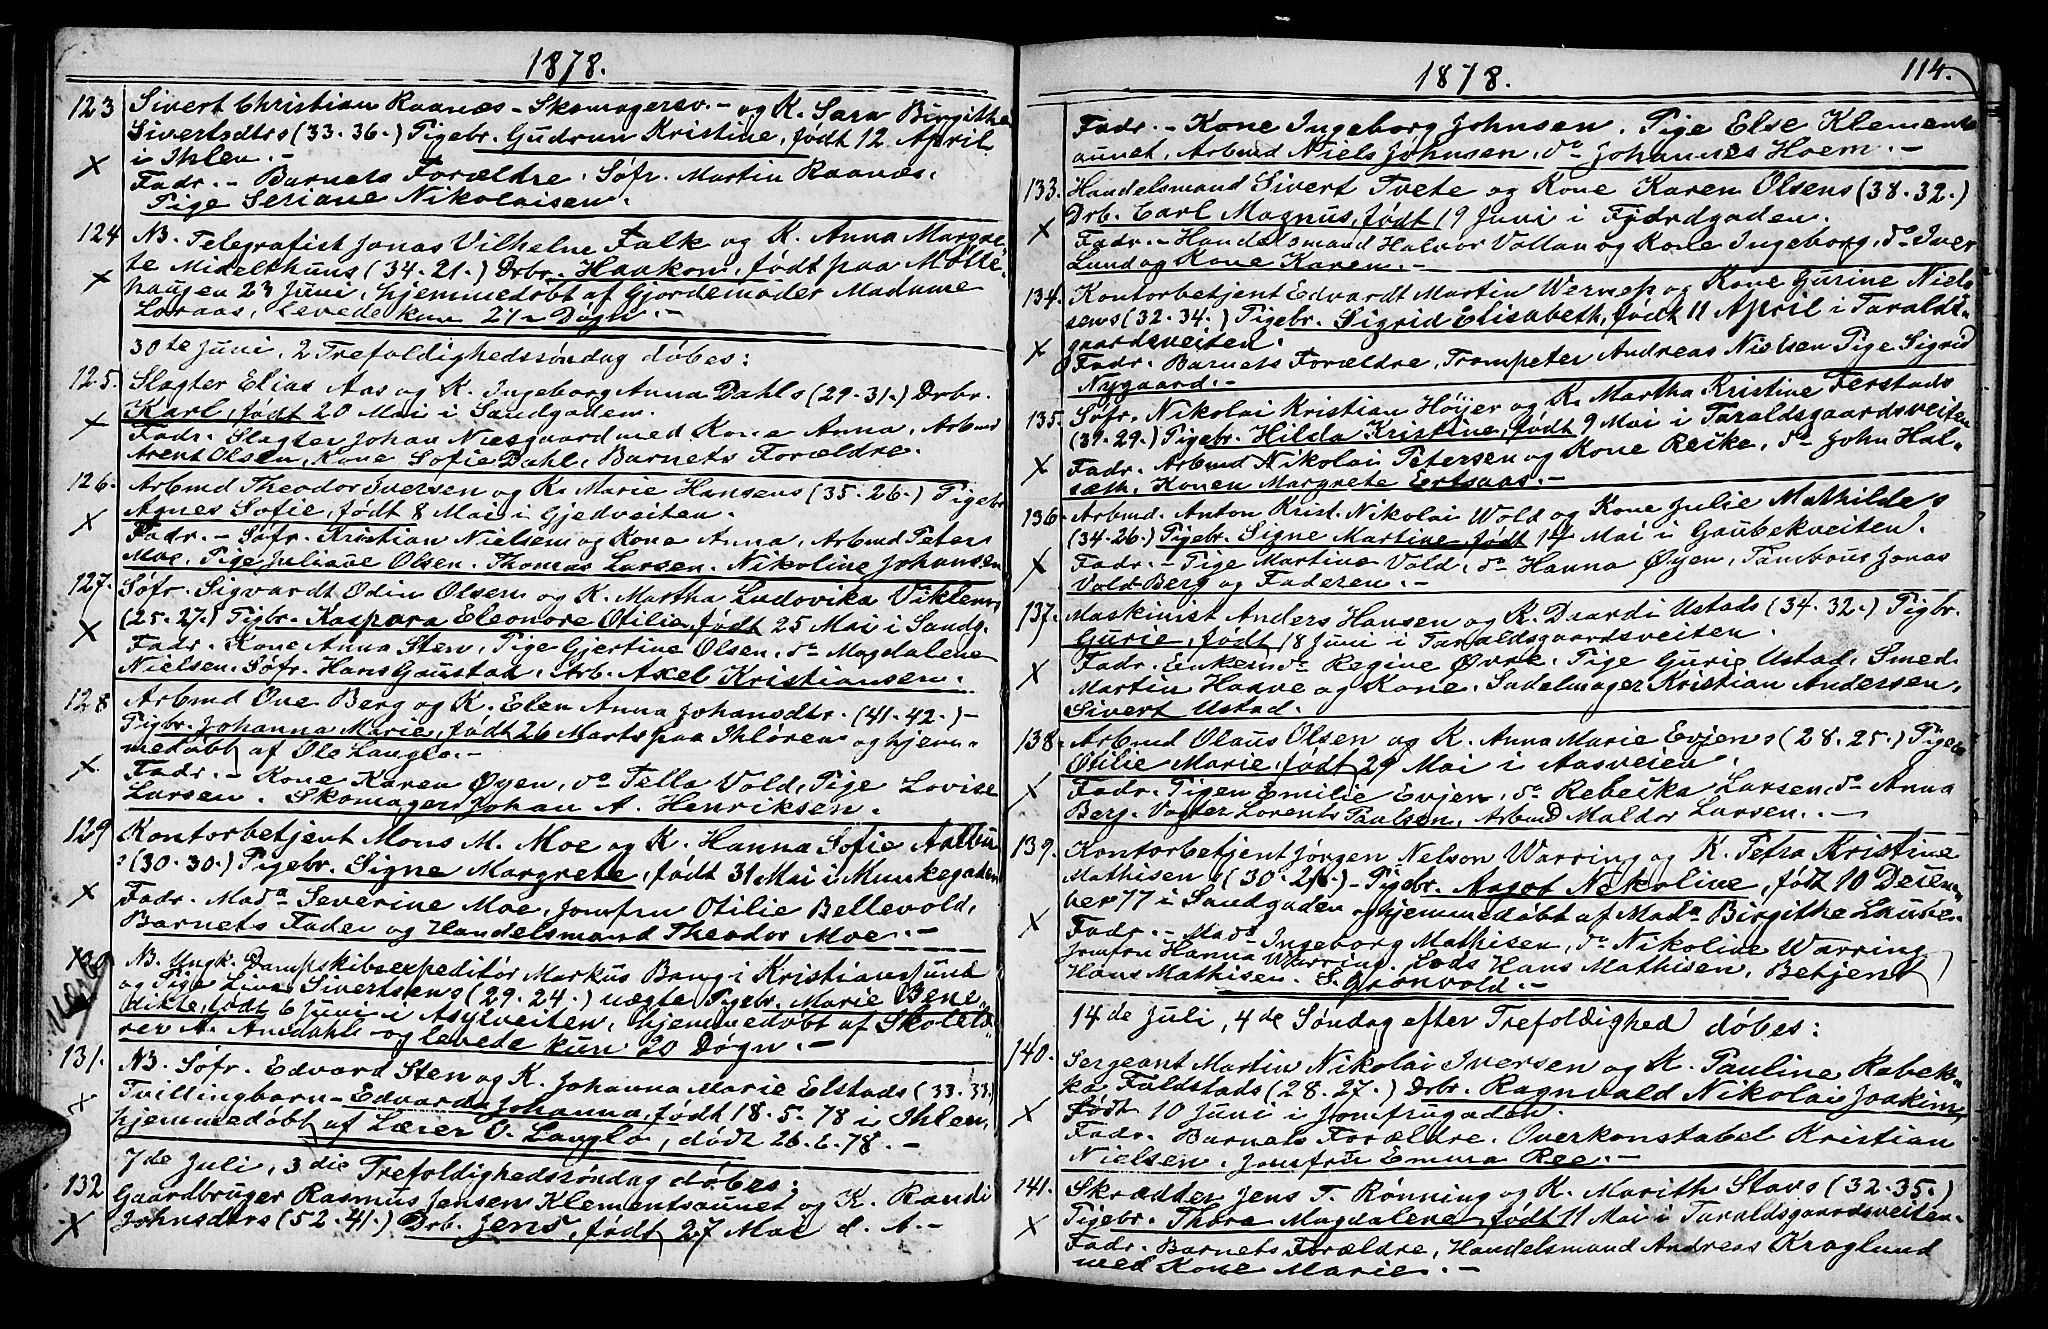 1878.
123 Sivert Christian Raanæs - Skomagersv. - og K. Sara Birgithe
Sivertsdtrs (33.36.) Pigebr. Gudrun Kristine, født 12 April
i Ihlen. -
Fadr. - Barnets Forældre. Söfr. Martin Raanæs.
Pige Seriane Nikolaisen.
124 NB. Telegrafist Jonas Vilhelm Falk og K. Anna Margre-
te Midelthuns (34.21.) Drbr. Haakon, født paa Mölle-
haugen 23 Juni, hjemmedøbt af Gjordemoder Madame
Loraas, Levede kun 21 Døgn. -
30te Juni, 2 Trefoldighedssöndag döbes:
125. Slagter Elias Aas og K. Ingeborg Anna Dahls (29.31.) Drbr.
Karl, født 20 Mai i Sandgaden.
Fadr. Slagter Johan Næsgaard med Kone Anna, Arbmd
Arent Olsen, Kone Sofie Dahl, Barnets Forældre.
126. Arbmd Theodor Iversen og K. Marie Hansens (35.26.) Pigebr.
Agnes Sofie, født 8 Mai i Gjedveiten.
Fadr. - Söfr. Kristian Nielsen og Kone Anna, Arbmd Peter
Moe, Pige Juliane Olsen. Thomas Larsen. Nikoline Johansen
127. Söfr. Sigvardt Odin Olsen og K. Martha Ludovika Viklems
(25.27.) Pigbr. Kaspara Eleonore Otilie, født 25 Mai i Sandg.
Fadr. Kone Anna Sten, Pige Gjertine Olsen, do Magdalene
Nielsen. Söfr. Hans Gaustad, Arb. Axel Kristiansen.
128 Arbmd Ove Berg og K. Elen Anna Johansdtr. (41.42.) -
Pigbr. Johanna Marie, født 26 Marts paa Ihlören og hjem-
medøbt af Ole Langlo. -
Fadr. - Kone Karen Øyen, do Tella Vold, Pige Lovise
Larsen. Skomager Johan A. Henriksen.
129 Kontorbetjent Mons M. Moe og K. Hanna Sofie Aalbu-
s (30.30.) Pigebr. Signe Margrete, født 31 Mai i Munkegaden
Fadr. Mada Severine Moe, Jomfru Otilie Bellevold,
Barnets Fader og Handelsmand Theodor Moe. -
130 NB. Ungk. Dampskibsexpeditör Markus Bang i Kristiansund
og Pige Lina Sivertsens (29.24.) uægte Pigebr. Marie Bene-
dikte, født 6 Juni i Asylveiten, hjemmedøbt af Skolelæ-
rer A. Amdahl - og levede kun 20 Døgn. -
131. NB. Söfr. Edvard Sten og K. Johanna Marie Elstads (33.33.)
Tvillingbarn - Edvarda Johanna, født 18.5.78 i Ihlen,
hjemmedøbt af Lærer O. Langlo, dødt 26.6.78. -
7de Juli, 3die Trefoldighedssöndag döbes;
132 Gaardbruger Rasmus Jensen Klementsaunet og K. Randi
Johnsdtrs (52.41.) Drb. Jens, født 27 Mai d. A. -
1878.
114.
Fadr. - Kone Ingeborg Johnsen. Pige Else Klements-
aunet, Arbmd Niels Johnsen, do Johannes Hoem. -
133. Handelsmand Sivert Tvete og Kone Karen Olsens (38.32.)
Drb. Carl Magnus, født 19 Juni i Fjordgaden.
Fadr. - Handelsmand Halvor Vollan og Kone Ingeborg, do Iver
Lund og Kone Karen. -
134. Kontorbetjent Edvardt Martin Werness og Kone Gurine Niel-
sens (32.34.) Pigebr. Sigrid Elisabeth, født 11 April i Taralds-
gaardsveiten.
Fadr. Barnets Forældre, Trompeter Andreas Nielsen Pige Sigrid
Nygaard. -
135. Söfr. Nikolai Kristian Höyer og K. Martha Kristine Ferstads
(39.29.) Pigebr. Hilda Kristine, født 9 Mai i Taraldsgaardsveiten
Fadr. Arbmd Nikolai Petersen og Kone Reike, do John Hal-
sæth, Konen Margrete Eertsaas. -
136. Arbmd. Anton Krist. Nikolai Wold og Kone Julie Mathildes
(34.26.) Pigebr. Signe Martine, født 14 Mai i Gaubekveiten.
Fadr. - Pige Martine Vold, do Hanna Øyen, Tambour Jonas
Vold-Berg og Faderen. -
137. Maskinist Anders Hansen og K. Daardi Ustads (34.32.) Pigbr.
Gurie, født 18 Juni i Taraldsgaardsveiten.
Fadr. Enkem. Regine Øvre, Pige Gurie Ustad, Smed
Martin Haave og Kone. Sadelmager Kristian Andersen,
Sivert Ustad.
138. Arbmd Olaus Olsen og K. Anna Marie Evjens (28.25.) Pigebr
Otilie Marie, født 29 Mai i Aasveien.
Fadr. Pigen Emilie Evjen, do Rebecka Larsen, do Anna
Berg. Vogter Lorents Paulsen, Arbmd Maldor Larsen. -
139. Kontorbetjent Jörgen Nelson Warring og K. Petra Kristine
Mathisen (30.26.) - Pigebr. Aagot Nikoline, født 10 Decem-
ber 77 i Sandgaden og hjemmedøbt af Mada Birgithe Laube.
Fadr. - Mada Ingeborg Mathisen, do Nikoline Warring
Jomfru Hanna Warring. Lods Hans Mathisen, Betjent
Hans Mathisen. S. Grönvold. -
14de Juli, 4de Söndag efter Trefoldighed döbes:
140. Sergeant Martin Nikolai Iversen og K. Pauline Rabek-
ka Fuldstads (28.27.) Drbr. Ragnvald Nikolai Joakim,
født 10 Juni i Jomfrugaden.
Fadr. Barnets Forældre. Overkonstabel Kristian
Nielsen, Jomfru Emma Ree. -
141. Skrædder Jens T. Rönning og K. Marith Stavs (32.35.)
Pigebr. Thora Magdalene, født 11 Mai i Taraldsgaardsveiten.
Fadr. Barnets Forældre, Handelsmand Andreas Kroglund
med Kone Marie. -